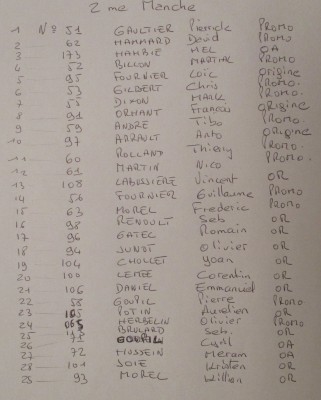 2 me Manche
1 N° 51 GAULTIER Pierrick PROMO
2 62 HAMMARD David PROMO
3 173 HAMBIE MEL OA
4 52 BILLON MARTIAL PROMO
5 95 FOURNIER Loic ORigine
6 53 GILBERT Chris PROMO.
7 55 DIXON MARK PROMO.
8 91 ORHANT Francois ORigine
9 59 ANDRE Tibo PROMO.
10 97 ARRAULT Anto ORigine
11 60 ROLLAND Thierry PROMO.
12 61 MARTIN Nico PROMO.
13 108 LABOSSIERE Vincent OR
14 56 FOURNIER Guillaume PROMO
15 63 MOREL Frederic PROMO
16 98 RENOULT Seb OR
17 96 GATEL Romain OR
18 94 JUNOT Olivier OR
19 104 CHOLLET Yoan OR
20 100 LEMEE Corentin OR
21 106 DANIEL Emmanuel OR
22 58 GOUPIL Pierre PROMO
23 POTIN Aurelien OR
24 HERBELIN Olivier PROMO
25 BRULARD Seb. OR
26 71 Cyril OA
27 72 HOSSEIN Meram OA
28 101 JOIE Kristen OR
93 MOREL Willien OR